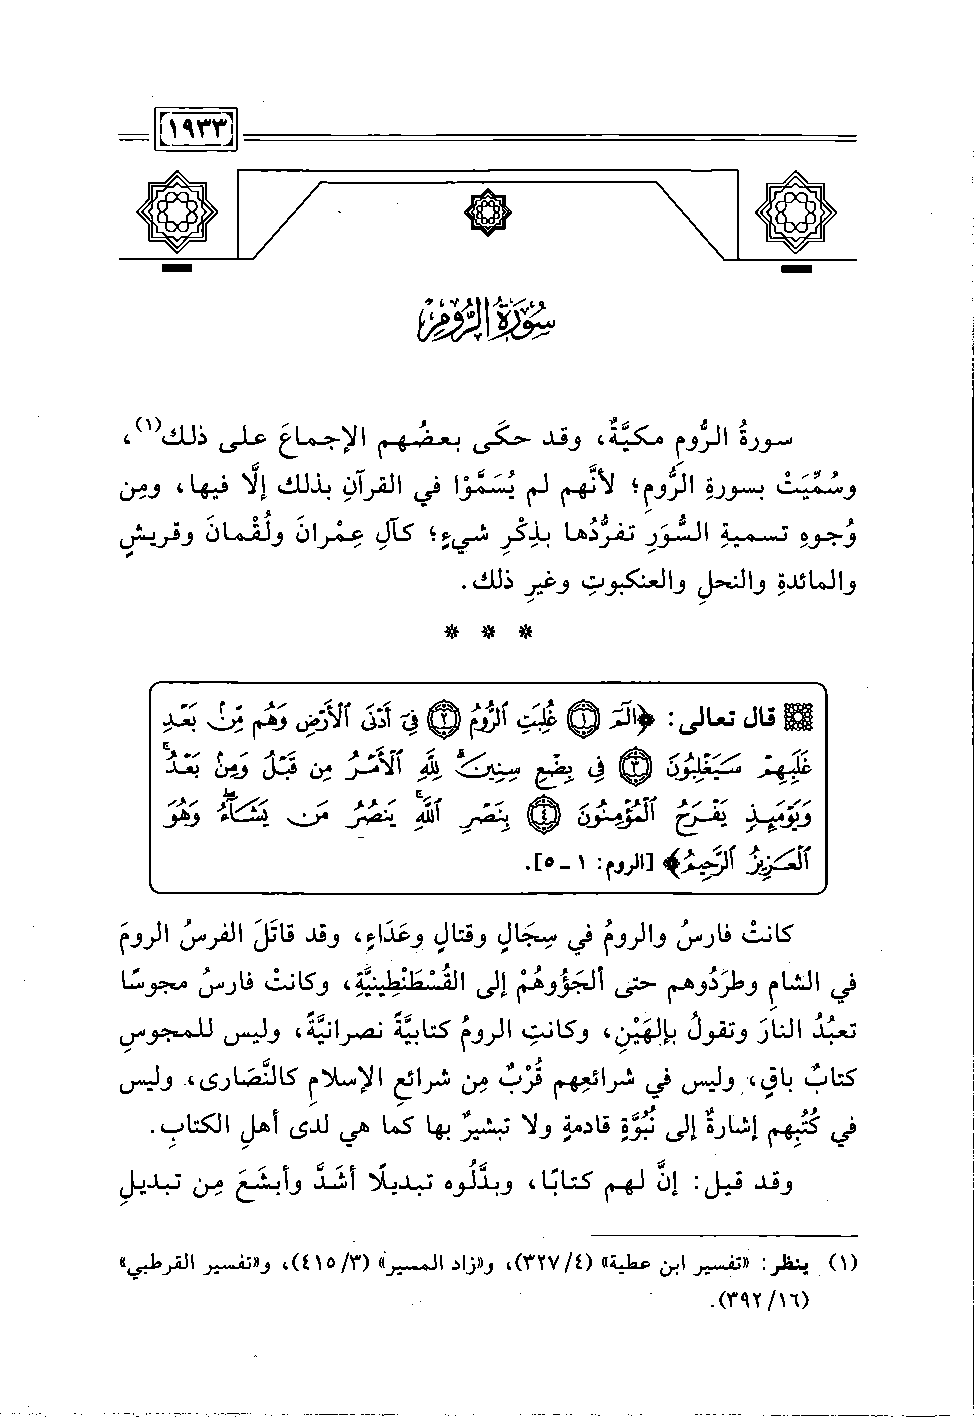 ١٩٣٣
سُورَةُ الرُّومِ
سورةُ الرُّومِ مكيَّةٌ، وقد حكَى بعضُهم الإجماعَ على ذلك(١)،
وسُمِّيَتْ بسورةِ الرُّومِ؛ لأنَّهم لم يُسَمَّوْا في القرآنِ بذلك إلَّا فيها، ومِن
وُجوهِ تسميةِ السُّوَرِ تفرُّدُها بِذِكْرِ شيءٍ؛ كآلِ عِمْرانَ ولُقْمانَ وقريشٍ
والمائدةِ والنحلِ والعنكبوتِ وغيرِ ذلك.
* * *
قال تعالى: ﴿الٓمٓ ۝١ غُلِبَتِ ٱلرُّومُ ۝٢ فِىٓ أَدْنَى ٱلْأَرْضِ وَهُم مِّنۢ بَعْدِ
غَلَبِهِمْ سَيَغْلِبُونَ ۝٣ فِى بِضْعِ سِنِينَۗ لِلَّهِ ٱلْأَمْرُ مِن قَبْلُ وَمِنۢ بَعْدُۚ
وَيَوْمَئِذٍ يَفْرَحُ ٱلْمُؤْمِنُونَ ۝٤ بِنَصْرِ ٱللَّهِۚ يَنصُرُ مَن يَشَآءُۖ وَهُوَ
ٱلْعَزِيزُ ٱلرَّحِيمُ﴾ [الروم: ١ ـ ٥].
كانتْ فارسُ والرومُ في سِجَالٍ وقتالٍ وعَدَاءٍ، وقد قاتَلَ الفرسُ الرومَ
في الشامِ وطرَدُوهم حتى ألجَؤُوهُمْ إلى القُسْطَنْطِينِيَّةِ، وكانتْ فارسُ مجوسًا
تعبُدُ النارَ وتقولُ بإلهَيْنِ، وكانتِ الرومُ كتابيَّةً نصرانيَّةً، وليس للمجوسِ
كتابٌ باقٍ، وليس في شرائعِهم قُرْبٌ مِن شرائعِ الإسلامِ كالنَّصَارى، وليس
في كُتُبِهم إشارةٌ إلى نُبُوَّةٍ قادمةٍ ولا تبشيرٌ بها كما هي لدى أهلِ الكتابِ.
وقد قيل: إنَّ لهم كتابًا، وبدَّلُوه تبديلًا أشَدَّ وأبشَعَ مِن تبديلِ
(١) ينظر: «تفسير ابن عطية» (٤/٣٢٧)، و«زاد المسير» (٣/٤١٥)، و«تفسير القرطبي»
(١٦/٣٩٢).